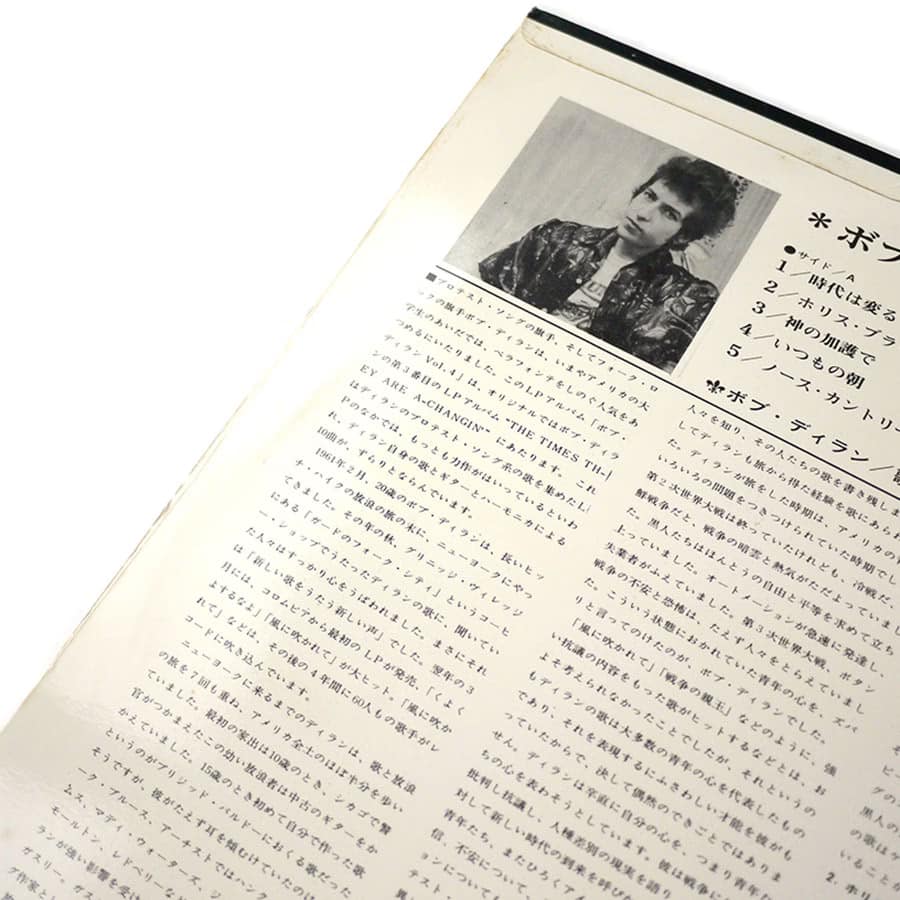 ＊ボブ
●サイド／A
1／時代は変る
2／ホリス・ブラ
3／神の加護で
4／いつもの朝
5／ノース・カントリー
ボブ・ディラン／
■プロテスト・ソングの旗手、そしてフォーク・ロ
ックの旗手ボブ・ディランは、いまやアメリカの大
学生のあいだでは、ベラフォンテをしのぐ人気をあ
つめるにいたりました。このLPアルバム「ボブ・
ディラン Vol. 4」は、オリジナルではボブ・ディラ
ンの第3番目のLPアルバム "THE TIMES TH-
EY ARE, A-CHANGIN'" にあたります。これ
はディランのプロテスト・ソング系の歌を集めたL
Pのなかでは、もっとも力作がはいっているといわ
れ、ディラン自身の歌とギターとハーモニカによる
10曲が、ずらりとならんでいます。
1961年2月、20歳のボブ・ディランは、長いヒッ
チ・ハイクの放浪の旅の末に、ニューヨークにやっ
てきました。その年の秋、グリニッジ・ヴィレッジ
にある「ガードのフォーク・シティ」というコーヒ
ー・ショップでうたったディランの歌に、聞いてい
た人々はすっかり心をうばわれました。まさにそれ
は「新しい歌をうたう新しい声」でした。翌年の3
月には、コロムビアから最初のLPが発売、「くよく
よするなよ」「風に吹かれて」が大ヒット。「風に吹か
れて」などは、その後の4年間に60人もの歌手がレ
コードに吹き込んでいます。
ニューヨークに来るまでのディランは、歌と放浪
の旅を7回も重ね、アメリカ全土のほぼ半分を歩い
ていました。最初の家出は10歳のとき、シカゴで警
官がつかまえたこの幼い放浪者は中古のギターをか
かえていました。15歳のとき初めて自分で作った歌
というのがブリジッド・バルドーにおくる歌だった
そうですが、彼がたえず耳を傾けていたのは
ーク・ブルース、アーチストではハンク
ムス、マディ・ウォーターズ、ジ
モールトン、レドベリーな
ランが強い影響を受け
ガスリー。ガス
グ作家とし
人々を知り、その人たちの歌を書き残しま
してディランも旅から得た経験を歌にあらわ
た。ディランが旅をした時期は、アメリカの青
いろいろの問題をつきつけられていた時期でし
第2次世界大戦は終っていたけれども、冷戦だ、
解戦争だと、戦争の暗雲と熱気がただよっていまし
た。黒人たちはほんとうの自由と平等を求めて立ち
上っていました。オートメーションが急速に発達し
失業者がふえていました。第3次世界大戦、ボタン
戦争の不安と恐怖は、たえず人々をとらえていまし
た。こういう状態におかれていた青年の心を、ズバ
リと言ってのけたのが、ボブ・ディランでした。
「風に吹かれて」「戦争の親玉」などのように、強
い抗議の内容をもった歌がヒットするなどとは、お
よそ考えられなかったことでしたが、それというの
もディランの歌は大多数の青年の心を代表したもの
であり、それを表現するにふさわしい才能を彼がも
っていたからで、決して偶然のできごとではありま
せん。ディランは卒直に自分の心を、つまり青年た
ちの心を表わそうとしています。彼は戦争に
批判し抗議し、人種差別の現実を語り
対して新しい時代の到来を呼び
青年たち、またひろくア
信、不安について、
ョンについても
テスト・
異
ピー
グの
黒人の
の歌はケ
いることが
2. ホリ